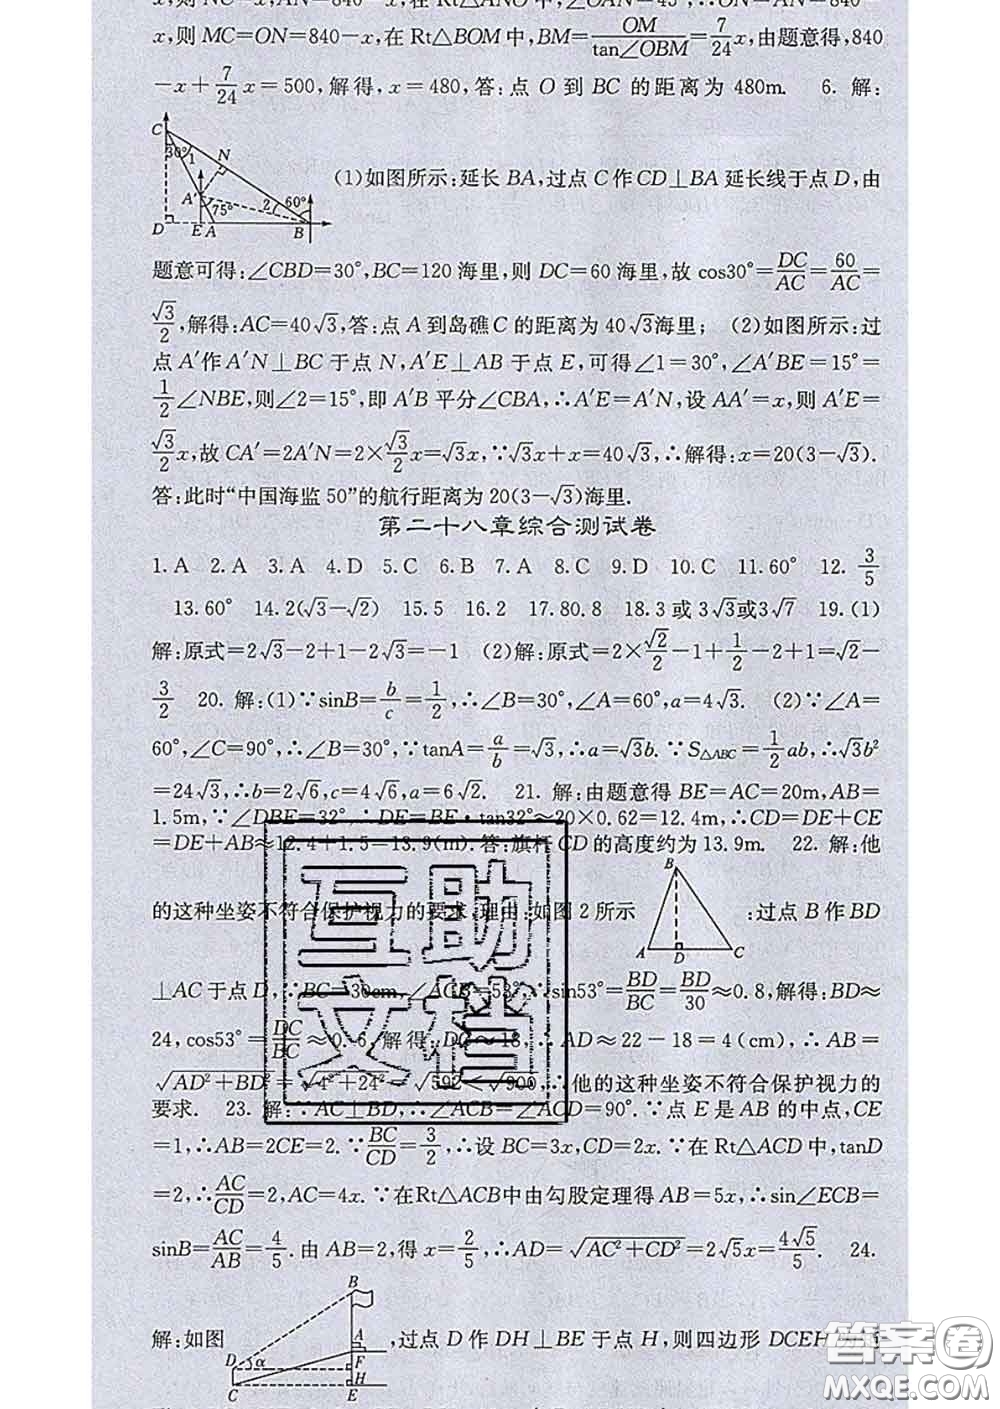 x,则 MC=ON=840-x,在 Rt△BOM 中,BM=OM/tan∠OBM=7/24x,由题意得,840
-x+7/24x=500,解得,x=480,答:点 O 到 BC 的距离为 480m. 6. 解:
C 30° 1 N A′ 75° 2 60° D E A B
(1)如图所示:延长 BA,过点 C 作 CD⊥BA 延长线于点 D,由
题意可得:∠CBD=30°,BC=120 海里,则 DC=60 海里,故 cos30°=DC/AC=60/AC=
√3/2,解得:AC=40√3,答:点 A 到岛礁 C 的距离为 40√3海里; (2)如图所示:过
点 A′作 A′N⊥BC 于点 N,A′E⊥AB 于点 E,可得∠1=30°,∠A′BE=15°=
1/2∠NBE,则∠2=15°,即 A′B 平分∠CBA,∴A′E=A′N,设 AA′=x,则 A′E=
√3/2x,故 CA′=2A′N=2×√3/2x=√3x,∵√3x+x=40√3,∴解得:x=20(3-√3).
答:此时“中国海监 50”的航行距离为 20(3-√3)海里.
第二十八章综合测试卷
1. A 2. A 3. A 4. D 5. C 6. B 7. A 8. C 9. D 10. C 11. 60° 12. 3/5
13. 60° 14. 2(√3-√2) 15. 5 16. 2 17. 80.8 18. 3 或 3√3或3√7 19. (1)
解:原式=2√3-2+1-2√3=-1 (2)解:原式=2×√2/2-1+1/2-2+1=√2-
3/2 20. 解:(1)∵sinB=b/c=1/2,∴∠B=30°,∠A=60°,a=4√3. (2)∵∠A=
60°,∠C=90°,∴∠B=30°,∵tanA=a/b=√3,∴a=√3b. ∵S△ABC=1/2ab,∴√3b²
=24√3,∴b=2√6,c=4√6,a=6√2. 21. 解:由题意得 BE=AC=20m,AB=
1.5m,∵∠DBE=32°,∴DE=BE·tan32°≈20×0.62=12.4m,∴CD=DE+CE
=DE+AB≈12.4+1.5=13.9(m).答:旗杆 CD 的高度约为 13.9m. 22. 解:他
的这种坐姿不符合保护视力的要求,理由:如图 2 所示 B A D C :过点 B 作 BD
⊥AC 于点 D,∵BC=30cm,∠ACB=53°,∴sin53°=BD/BC=BD/30≈0.8,解得:BD≈
24,cos53°=DC/BC≈0.6,解得:DC≈18,∴AD≈22-18=4(cm),∴AB=
√AD²+BD²=√4²+24²=√592<√900,∴他的这种坐姿不符合保护视力的
要求. 23. 解:∵AC⊥BD,∴∠ACB=∠ACD=90°.∵点 E 是 AB 的中点,CE
=1,∴AB=2CE=2.∵BC/CD=3/2,∴设 BC=3x,CD=2x.∵在 Rt△ACD 中,tanD
=2,∴AC/CD=2,AC=4x.∵在Rt△ACB中由勾股定理得 AB=5x,∴sin∠ECB=
sinB=AC/AB=4/5.由 AB=2,得 x=2/5,∴AD=√AC²+CD²=2√5x=4√5/5. 24.
解:如图 B A D α F H C E ,过点 D 作 DH⊥BE 于点 H,则四边形 DCEH
互助
文档
答案圈
MXQE.COM